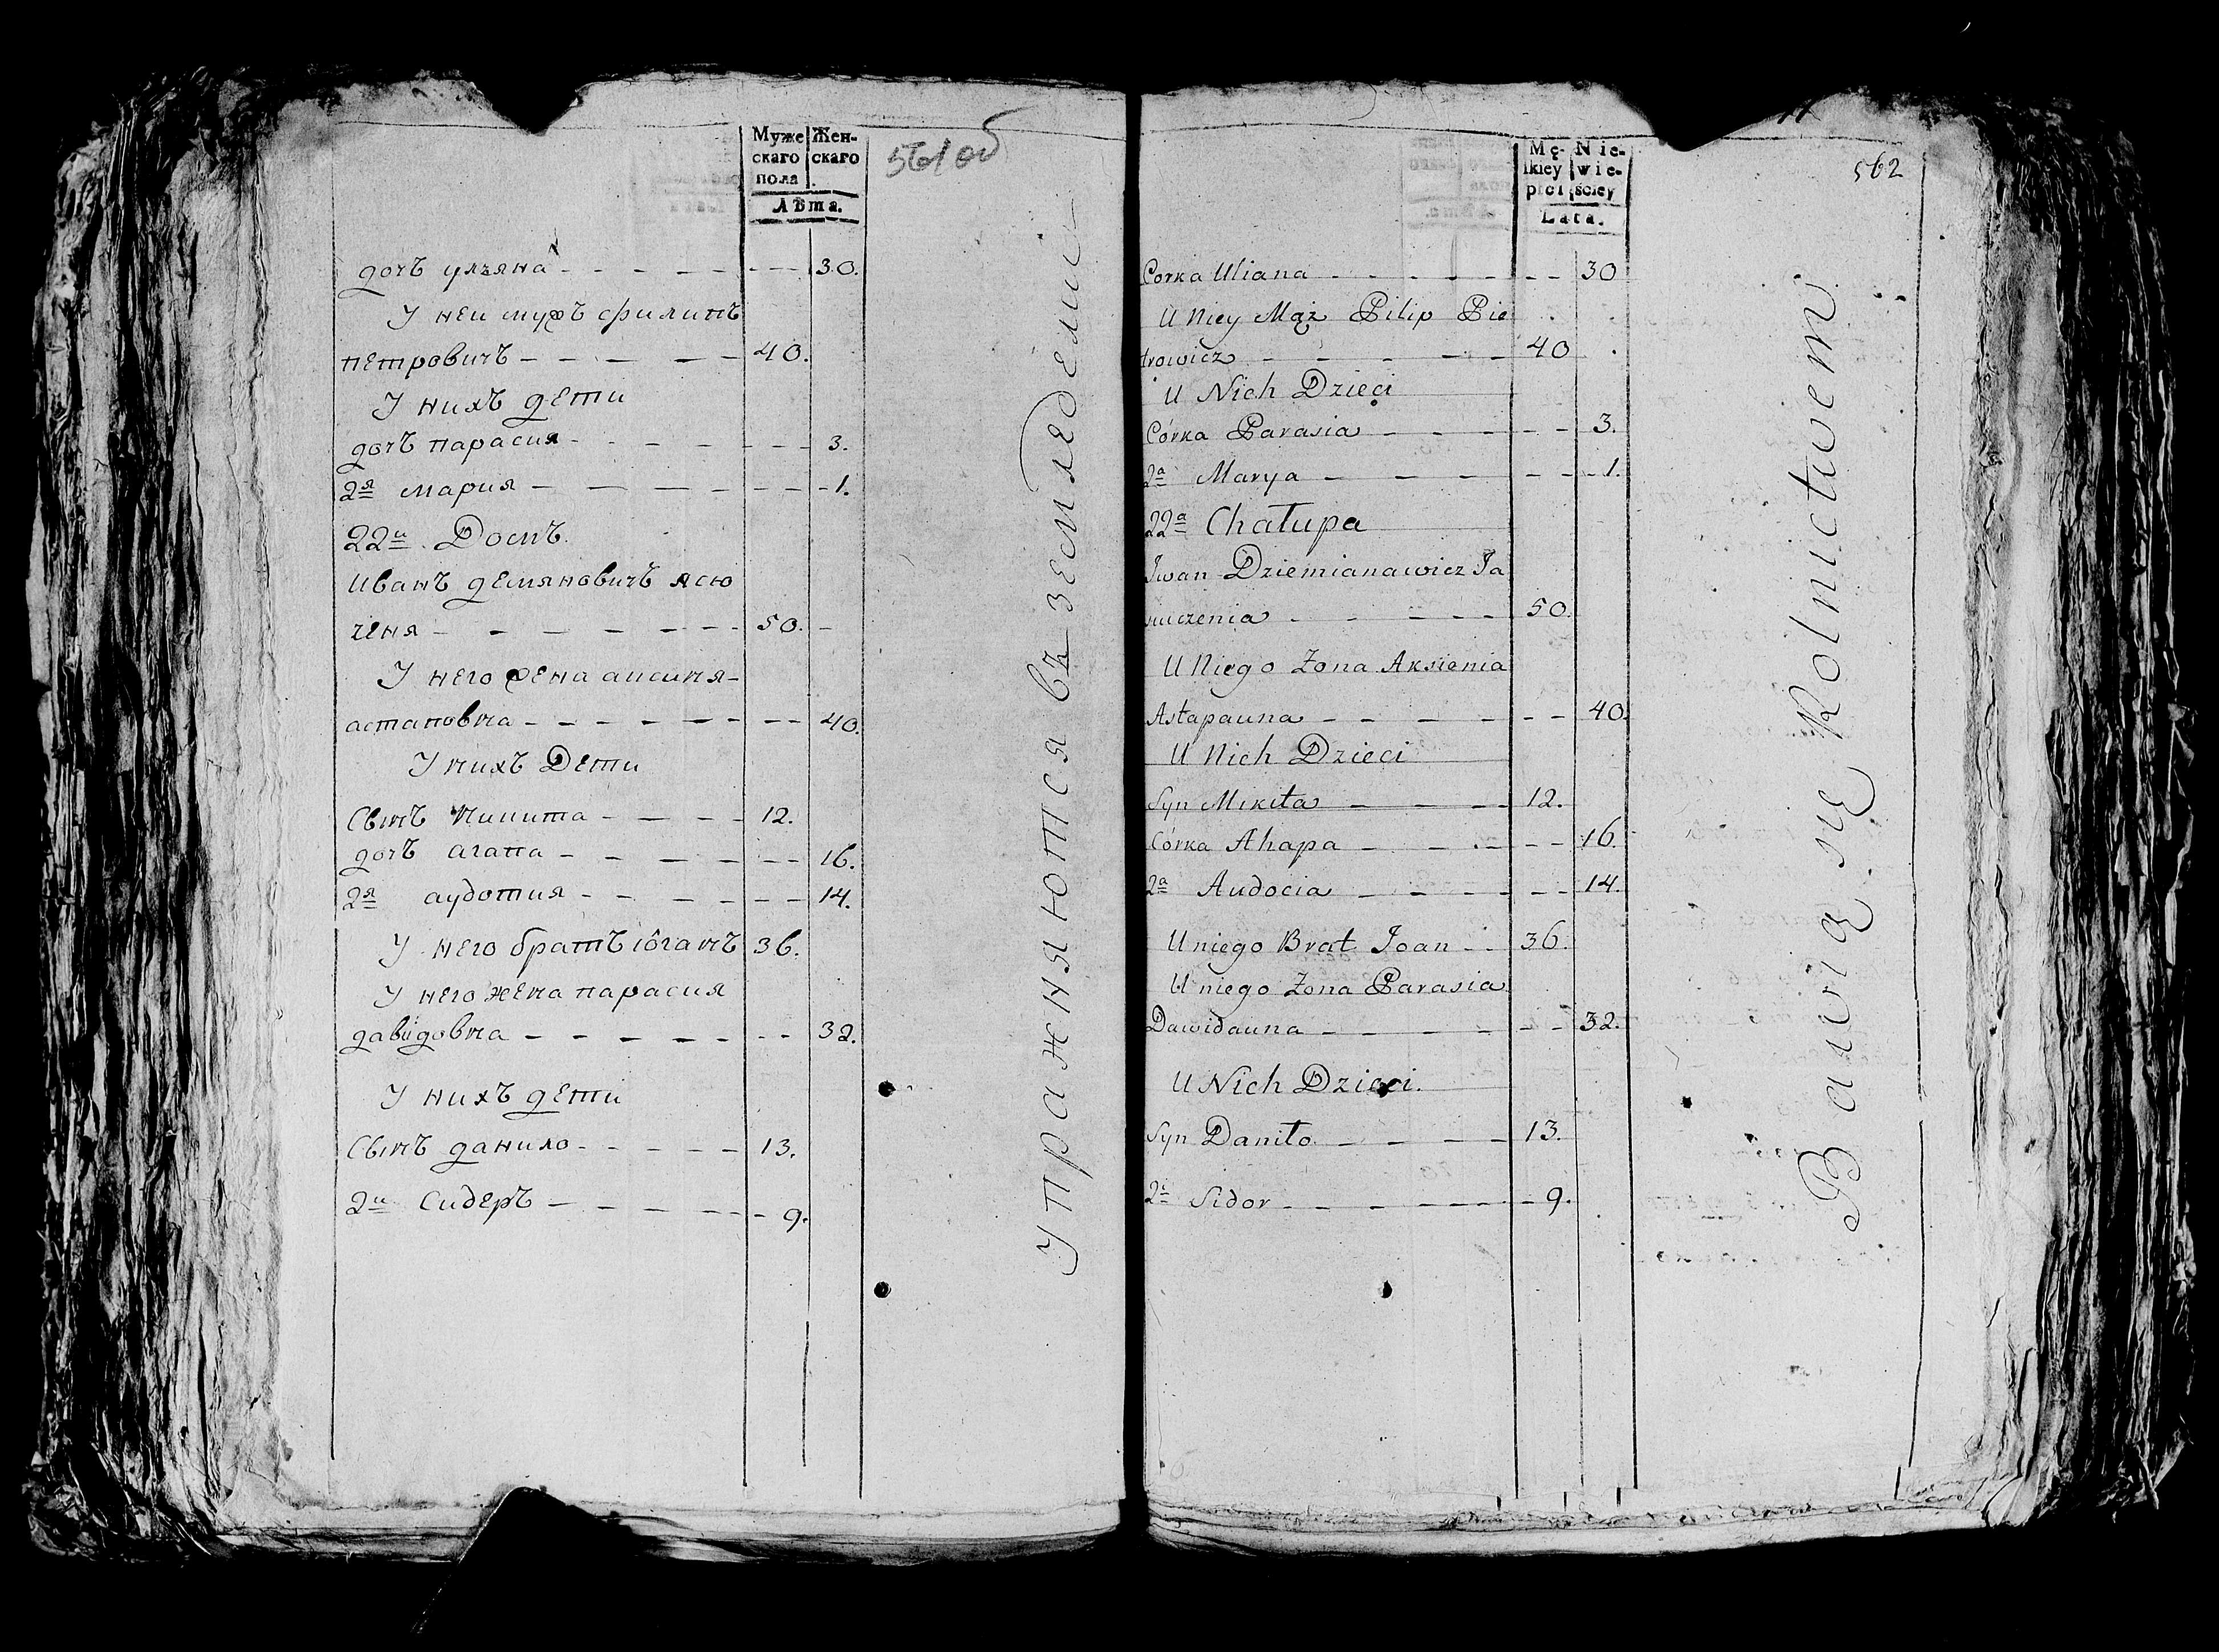 Муже
скаго
пола
Жен-
скаго
Лѣта.
561 об
дочъ уляяна - - - - - 30.
У неи мужъ филипъ
петровичъ - - - - - 40.
У нихъ дети
дочъ парасия - - - - - 3.
2я мария - - - - - 1.
22и Домъ.
Иванъ демяновичъ ясю
ченя - - - - - 50. -
У него жена аксиня-
астаповна - - - - - 40.
У нихъ Дети
Сынъ Никита - - - - 12.
дочъ агапа - - - - - 16.
2я аудотия - - - - - 14.
У него братъ іоганъ 36.
У него жена парасия
давидовна - - - - - 32.
У нихъ дети
Сынъ данило - - - - - 13.
2и Сидеръ - - - - - 9.
Упражняются въ земледелии
Mę-
skiey
płci
Nie-
wie-
ściey
Lata.
562
Corka Uliana - - - - - 30
U Niey Mąż Pilip Pie
trowicz - - - - - 40
U Nich Dzieci
Córka Parasia - - - - - 3.
2a Marya - - - - - 1.
22a Chałupa
Iwan Dziemianawicz Ja
siuczenia - - - - - 50.
U Niego Zona Aksienia
Astapauna - - - - - 40.
U Nich Dzieci
Syn Mikita - - - - 12.
Córka Ahapa - - - - - 16.
2a Audocia - - - - - 14.
U niego Brat Joan - - 36.
U niego Zona Parasia
Dawidauna - - - - - 32.
U Nich Dzieci.
Syn Daniło - - - - 13.
2i Sidor - - - - - 9.
Bawią się Rolnictwem